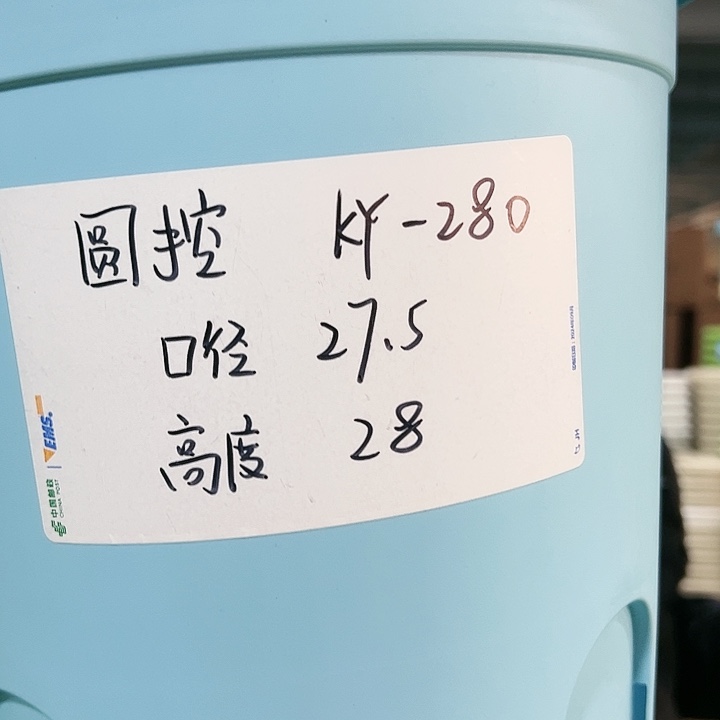 圓控 KY-280
口径 27.5
高度 28
EMS
中国邮政
CHINA POST